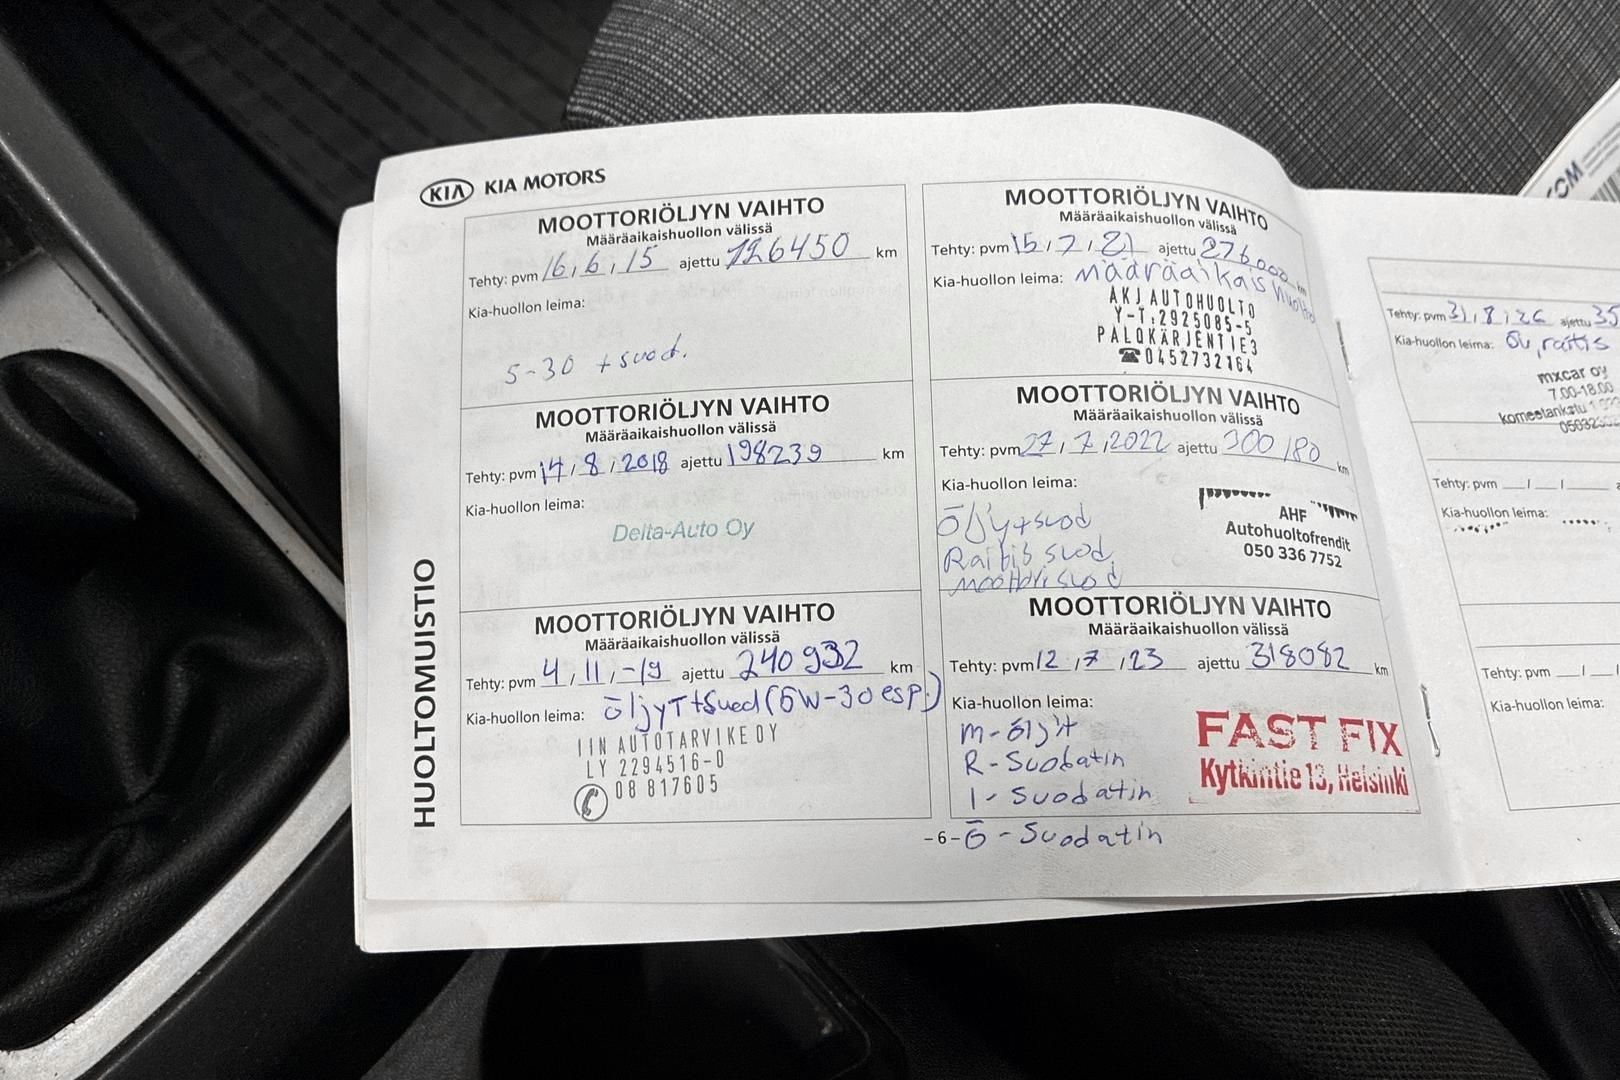 KIA KIA MOTORS
HUOLTOMUISTIO
MOOTTORIÖLJYN VAIHTO
Määräaikaishuollon välissä
Tehty: pvm 16 / 6 / 15 ajettu 126450 km
Kia-huollon leima:
5-30 + suod.
MOOTTORIÖLJYN VAIHTO
Määräaikaishuollon välissä
Tehty: pvm 14 / 8 / 2018 ajettu 198239 km
Kia-huollon leima:
Delta-Auto Oy
MOOTTORIÖLJYN VAIHTO
Määräaikaishuollon välissä
Tehty: pvm 4 / 11 / -19 ajettu 240932 km
Kia-huollon leima: öljyT+Suod (5W-30 esp.)
IIN AUTOTARVIKE OY
LY 2294516-0
08 817605
MOOTTORIÖLJYN VAIHTO
Määräaikaishuollon välissä
Tehty: pvm 15 / 7 / 21 ajettu 276000 km
Kia-huollon leima: määräaikaishuolto
AKJ AUTOHUOLTO
Y-T:2925085-5
PALOKÄRJENTIE3
☎0452732164
MOOTTORIÖLJYN VAIHTO
Määräaikaishuollon välissä
Tehty: pvm 27 / 7 / 2022 ajettu 300180 km
Kia-huollon leima:
Öljy+suod
Raitis suod.
moottori suod
AHF
Autohuoltofrendit
050 336 7752
MOOTTORIÖLJYN VAIHTO
Määräaikaishuollon välissä
Tehty: pvm 12 / 7 / 23 ajettu 318082 km
Kia-huollon leima:
m-öljyt
R-Suodatin
I-Suodatin
Ö-Suodatin
FAST FIX
Kytkintie 13, Helsinki
-6-
Tehty: pvm 31 / 8 / ajettu 35
Kia-huollon leima: raitis
mxcar oy
7.00-18.00
Tehty: pvm / /
Kia-huollon leima:
Tehty: pvm / /
Kia-huollon leima: